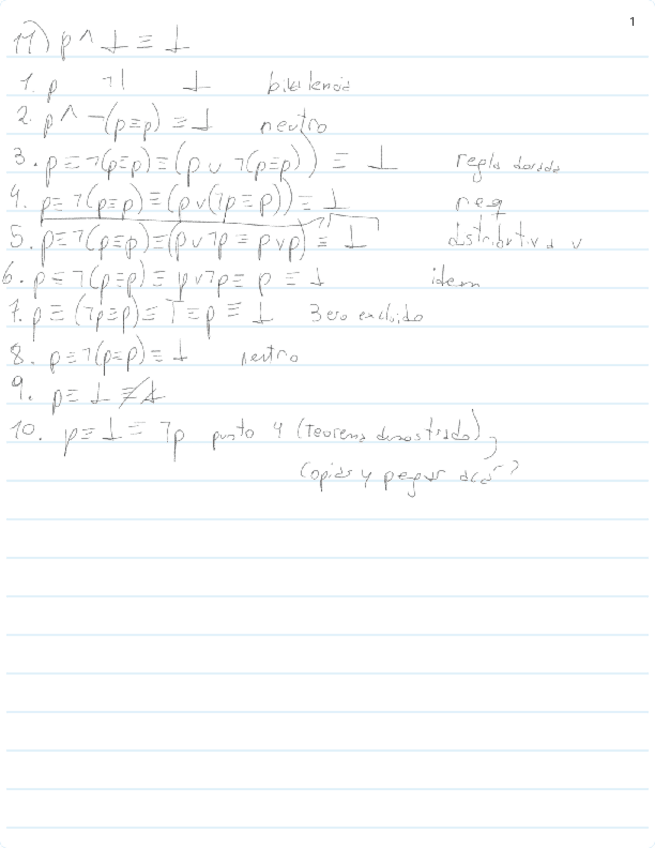 1
11) p ∧ ⊥ ≡ ⊥
1. p ⊥
2. p ∧ ¬(p≡p) ≡ ⊥ neutro
3. p ≡ ¬(p≡p) ≡ (p ∪ ¬(p≡p)) ≡ ⊥ regla dorada
4. p≡ ¬(p≡p) ≡ (p∪(¬p ≡ p)) ≡ ⊥ neg
5. p≡¬(p≡p)≡(p∪¬p ≡ p∪p) ≡ ⊥ distributiva ∪
6. p ≡ ¬(p≡p) ≡ p∪¬p≡ p ≡ ⊥ idem
7. p ≡ (¬p≡p)≡ T≡p ≡ ⊥ 3ero excluido
8. p≡¬(p≡p)≡ ⊥ neutro
9. p≡ ⊥
10. p≡ ⊥ ≡ ¬p punto 4 (Teorema demostrado),
Copias y pegar acá?